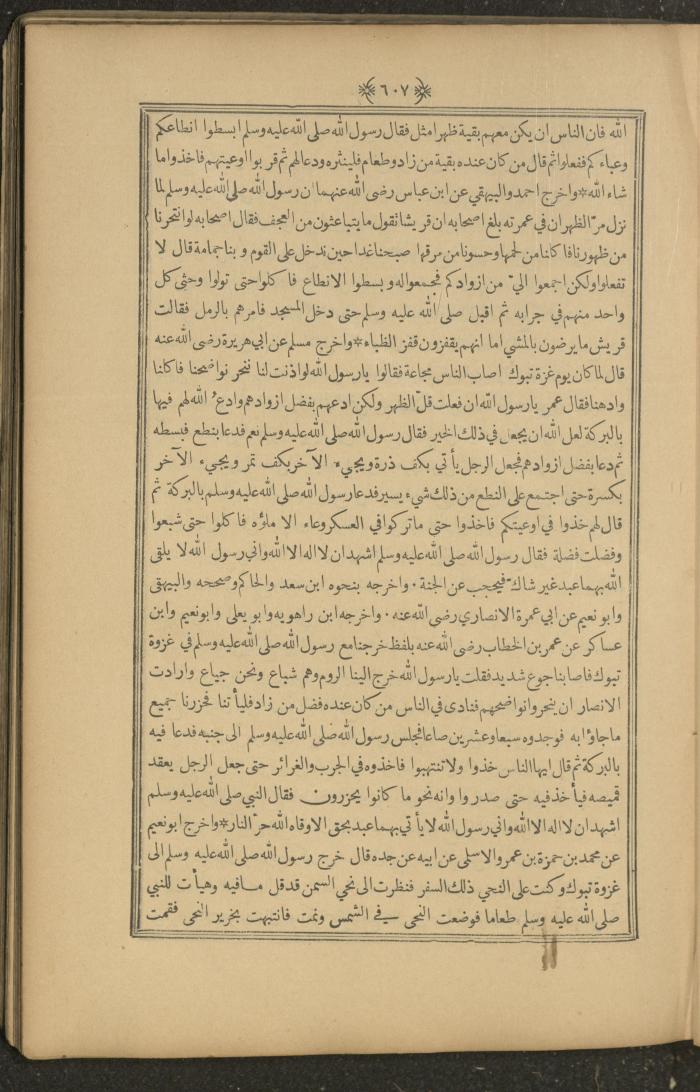 ٦٠٧
الله فان الناس ان يكن معهم بقية ظهر امثل فقال رسول الله صلى الله عليه وسلم ابسطوا انطاعكم
وعباءكم ففعلوا ثم قال من كان عنده بقية من زاد وطعام فلينثره ودعا لهم ثم قربوا اوعيتهم فاخذوا ما
شاء الله * واخرج احمد والبيهقي عن ابن عباس رضى الله عنهما ان رسول الله صلى الله عليه وسلم لما
نزل مرّ الظهران في عمرته بلغ اصحابه ان قريشا تقول ما يتباعثون من العجف فقال اصحابه لو انتحرنا
من ظهورنا فاكلنا من لحمها وحسونا من مرقها صبحنا غدا حين ندخل على القوم وبنا جمامة قال لا
تفعلوا ولكن اجمعوا اليّ من ازوادكم فجمعوا له وبسطوا الانطاع فاكلوا حتى تولوا وحثى كل
واحد منهم في جرابه ثم اقبل صلى الله عليه وسلم حتى دخل المسجد فامرهم بالرمل فقالت
قريش ما يرضون بالمشي اما انهم يقفزون قفز الظباء * واخرج مسلم عن ابي هريرة رضى الله عنه
قال لما كان يوم غزة تبوك اصاب الناس مجاعة فقالوا يارسول الله لو اذنت لنا ننحر نواضحنا فاكلنا
وادهنا فقال عمر يارسول الله ان فعلت قلّ الظهر ولكن ادعهم بفضل ازوادهم وادعُ الله لهم فيها
بالبركة لعل الله ان يجعل في ذلك الخير فقال رسول الله صلى الله عليه وسلم نعم فدعا بنطع فبسطه
ثم دعا بفضل ازوادهم فجعل الرجل يأتي بكف ذرة ويجيء الآخر بكف تمر ويجيء الآخر
بكسرة حتى اجتمع على النطع من ذلك شيء يسير فدعا رسول الله صلى الله عليه وسلم بالبركة ثم
قال لهم خذوا في اوعيتكم فاخذوا حتى ما تركوا في العسكر وعاء الا ملؤه فاكلوا حتى شبعوا
وفضلت فضلة فقال رسول الله صلى الله عليه وسلم اشهد ان لا اله الا الله واني رسول الله لا يلقى
الله بهما عبد غير شاكّ فيحجب عن الجنة . واخرجه بنحوه ابن سعد والحاكم وصححه والبيهقى
وابو نعيم عن ابي عمرة الانصاري رضى الله عنه . واخرجه ابن راهويه وابو يعلى وابو نعيم وابن
عساكر عن عمر بن الخطاب رضى الله عنه بلفظ خرجنا مع رسول الله صلى الله عليه وسلم في غزوة
تبوك فاصابنا جوع شديد فقلت يارسول الله خرج الينا الروم وهم شباع ونحن جياع وارادت
الانصار ان ينحروا نواضحهم فنادى في الناس من كان عنده فضل من زاد فليأتنا فحزرنا جميع
ما جاؤا به فوجدوه سبعا وعشرين صاعا فجلس رسول الله صلى الله عليه وسلم الى جنبه فدعا فيه
بالبركة ثم قال ايها الناس خذوا ولا تنتهبوا فاخذوه في الجرب والغرائر حتى جعل الرجل يعقد
قميصه فيأخذ فيه حتى صدروا وانه نحو ما كانوا يحزرون فقال النبي صلى الله عليه وسلم
اشهد ان لا اله الا الله واني رسول الله لا يأتي بهما عبد بحق الا وقاه الله حرّ النار * واخرج ابو نعيم
عن محمد بن حمزة بن عمرو الاسلى عن ابيه عن جده قال خرج رسول الله صلى الله عليه وسلم الى
غزوة تبوك وكنت على النحي ذلك السفر فنظرت الى نحي السمن قد قل ما فيه وهيأت للنبي
صلى الله عليه وسلم طعاما فوضعت النحى في الشمس ونمت فانتبهت بخرير النحى فقمت